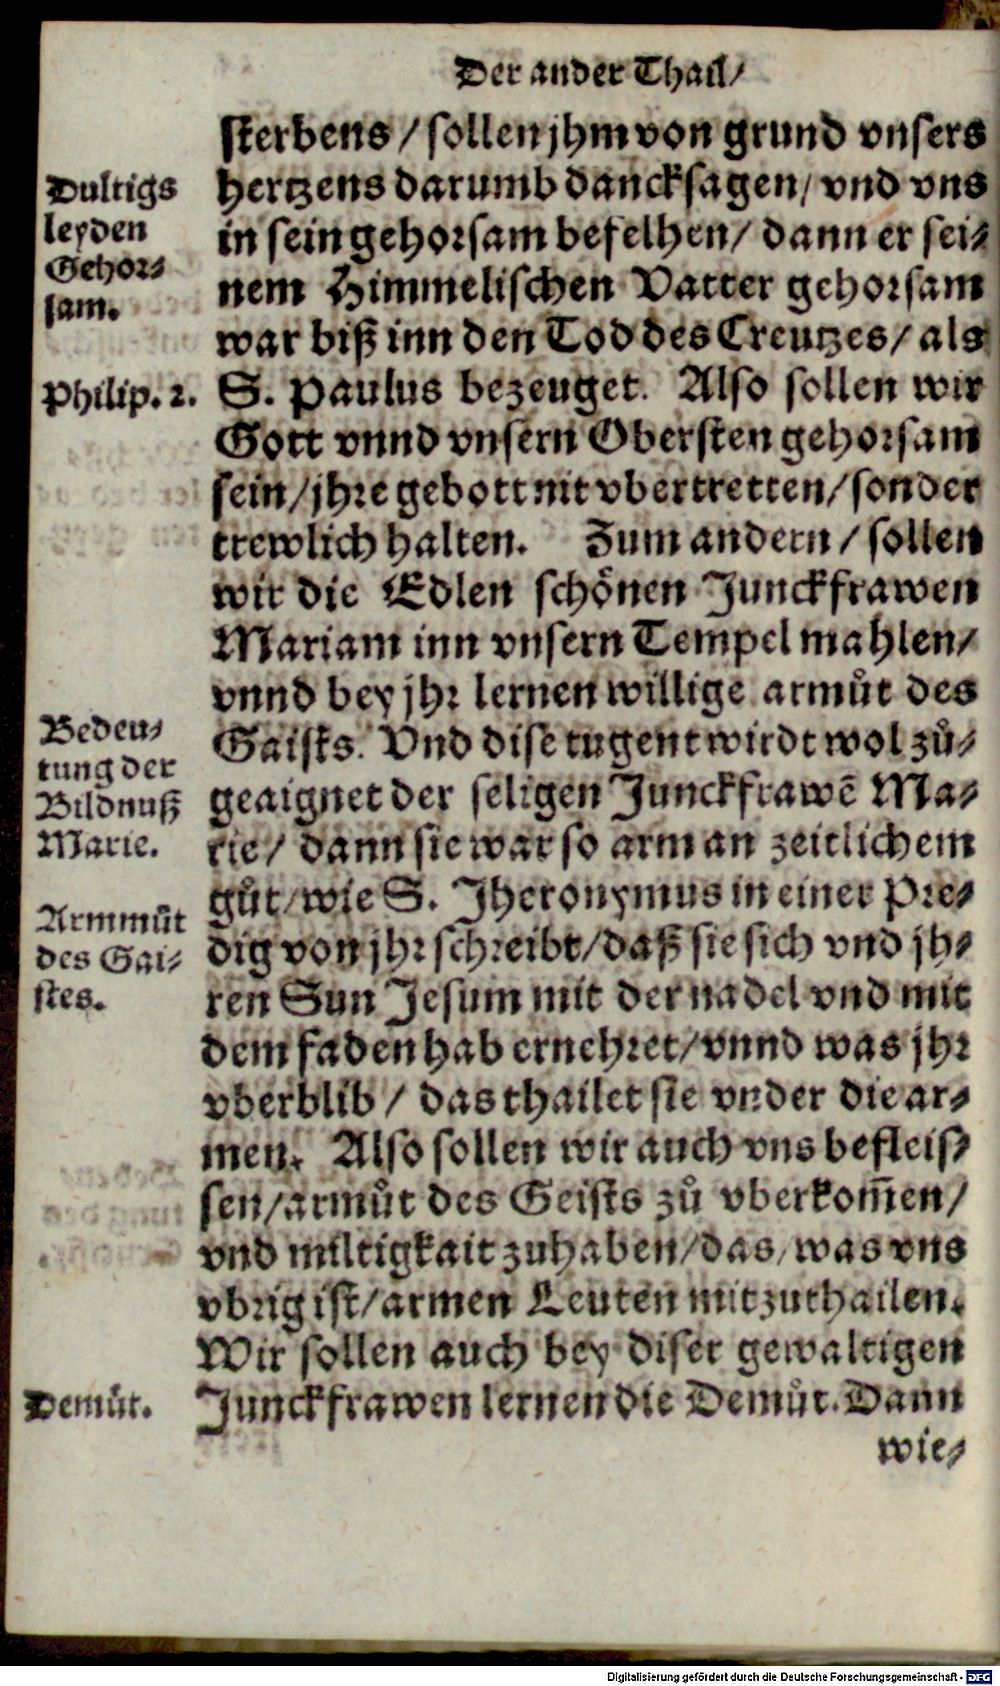 Der ander Thail/
sterbens / sollen jhm von grund vnsers
hertzens darumb dancksagen/ vnd vns
in sein gehorsam befelhen/ dann er sei⸗
nem Himmelischen Vatter gehorsam
war biß inn den Tod des Creutzes/ als
S. Paulus bezeuget. Also sollen wir
Gott vnnd vnsern Obersten gehorsam
sein/ jhre gebott nit vbertretten/ sonder
trewlich halten. Zum andern / sollen
wir die Edlen schönen Junckfrawen
Mariam inn vnsern Tempel mahlen/
vnnd bey jhr lernen willige armůt des
Gaists. Vnd dise tugent wirdt wol zů⸗
geaignet der seligen Junckfrawē Ma⸗
rie/ dann sie war so arm an zeitlichem
gůt/ wie S. Jheronymus in einer Pre⸗
dig von jhr schreibt/ daß sie sich vnd jh⸗
ren Sun Jesum mit der nadel vnd mit
dem faden hab ernehret/ vnnd was jhr
vberblib / das thailet sie vnder die ar⸗
men. Also sollen wir auch vns befleis⸗
sen/ armůt des Geists zů vberkom̄en/
vnd miltigkait zuhaben/ das, was vns
vbrig ist/ armen Leuten mitzuthailen.
Wir sollen auch bey diser gewaltigen
Junckfrawen lernen die Demůt. Dann
wie⸗
Dultigs
leyden
Gehor⸗
sam.
Philip. 2.
Bedeu⸗
tung der
Bildnuß
Marie.
Armmůt
des Gai⸗
stes.
Demůt.
Digitalisierung gefördert durch die Deutsche Forschungsgemeinschaft - DFG